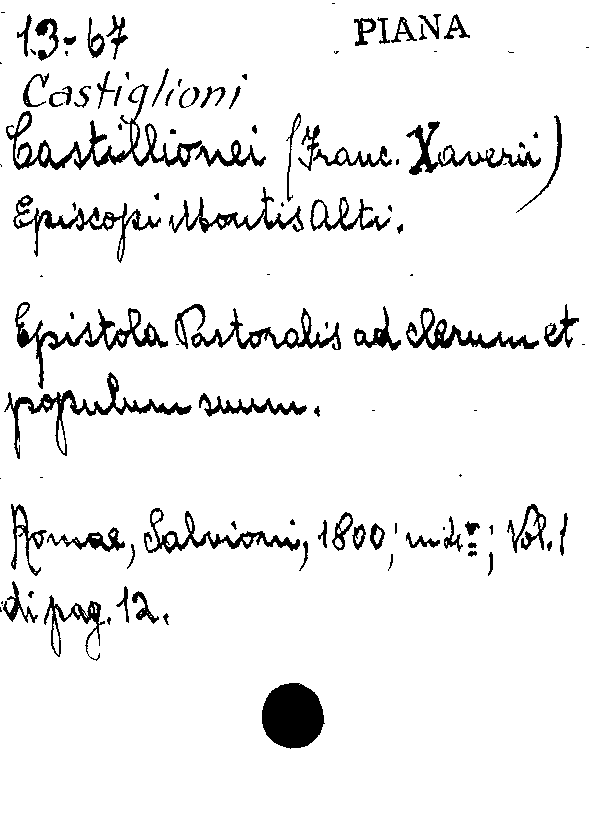 13-67 PIANA
Castiglioni
Castillionei (Franc. Xaverii)
Episcopi Montis Alti.
Epistola Pastoralis ad clerum et
populum suum.
Romae, Salvioni, 1800; in 4º; Vol. 1
di pag. 12.